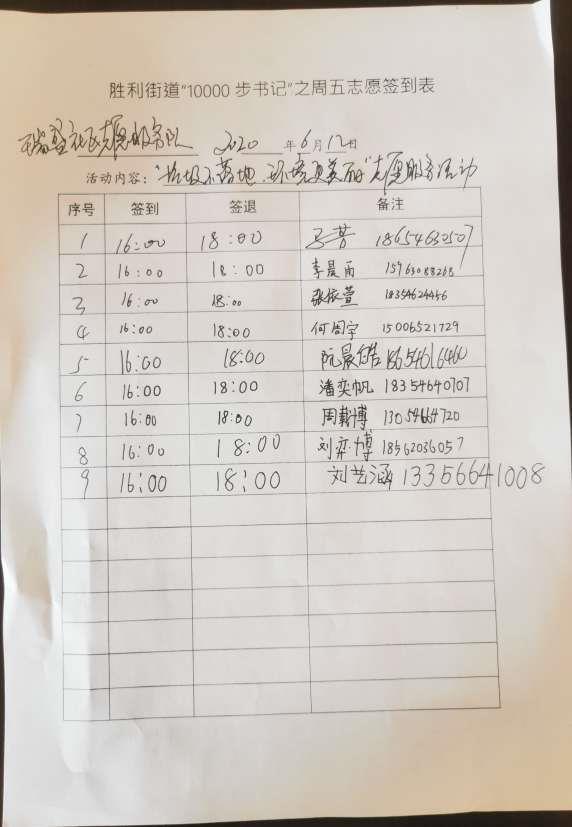 胜利街道“10000步书记”之周五志愿签到表
瑞盛社区志愿服务队 2020年6月12日
活动内容：“垃圾不落地、环境更美丽”志愿服务活动
序号 签到 签退 备注
1 16:00 18:00 18654630507
2 16:00 18:00 李晨雨 15963088268
3 16:00 18:00 张依萱 18354624456
4 16:00 18:00 何雨宇 15006521729
5 16:00 18:00 阮晨皓 18654616460
6 16:00 18:00 潘奕帆 18354640707
7 16:00 18:00 周戴博 13054664720
8 16:00 18:00 刘弈博 18562036057
9 16:00 18:00 刘艺涵 13356641008